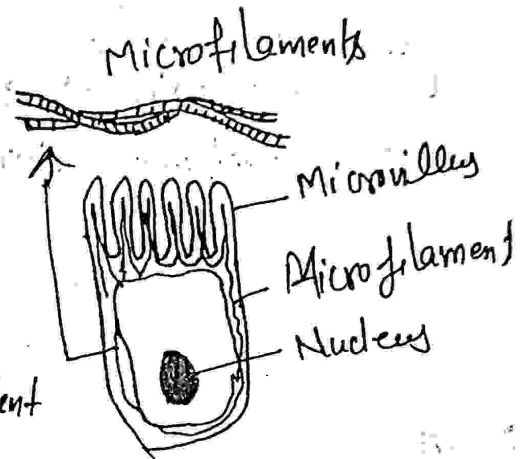 Microfilaments
Microvillus
Microfilament
Nucleus
ent